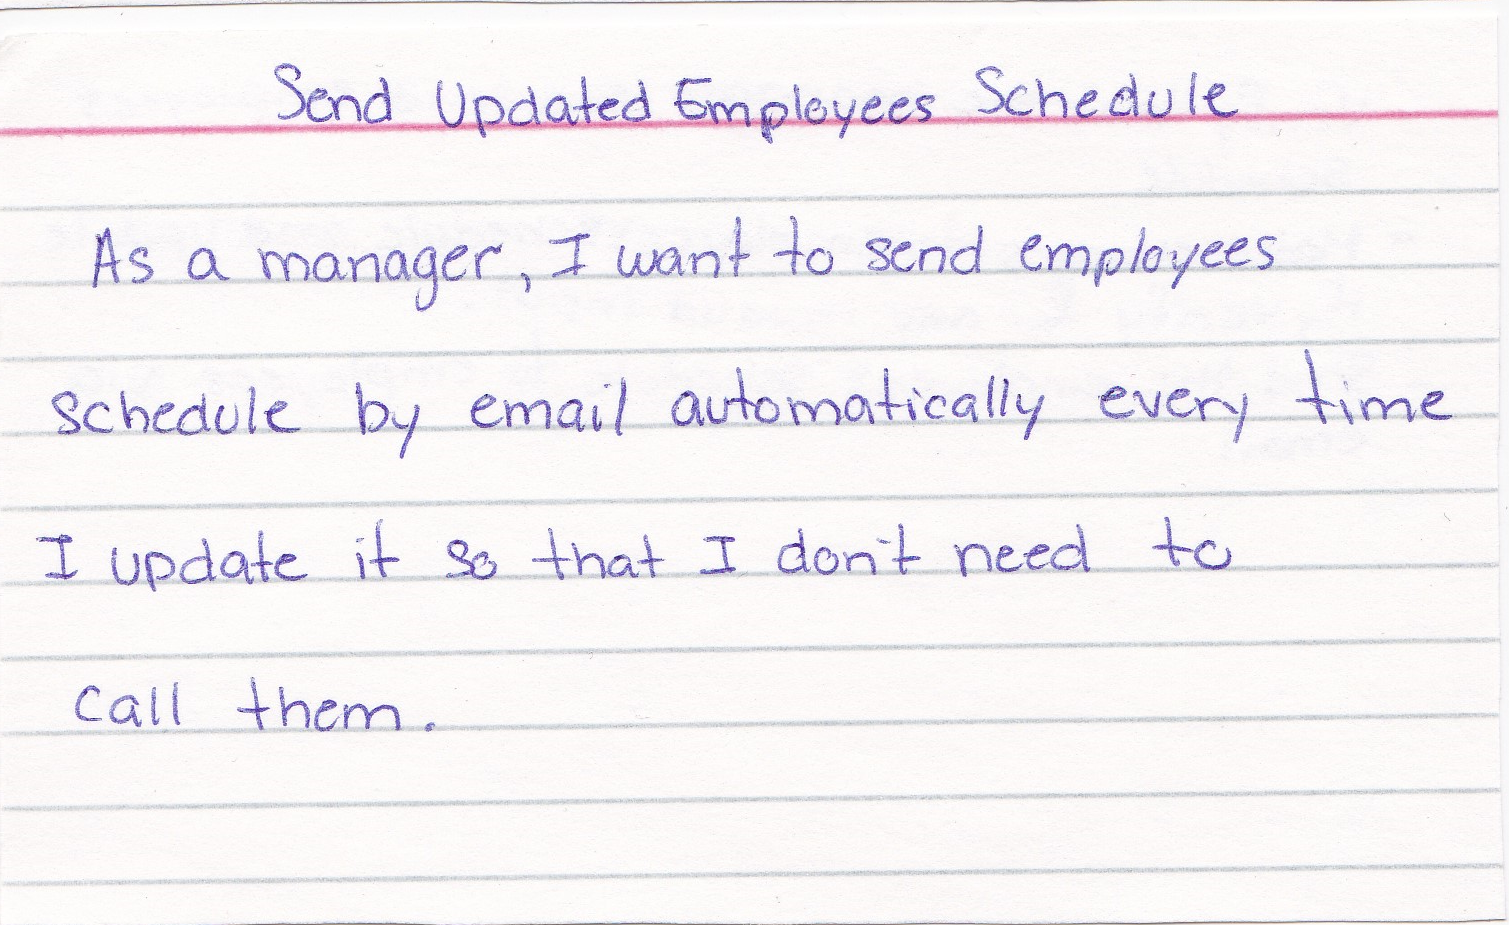 Send Updated Employees Schedule
As a manager, I want to send employees
schedule by email automatically every time
I update it so that I don't need to
call them.